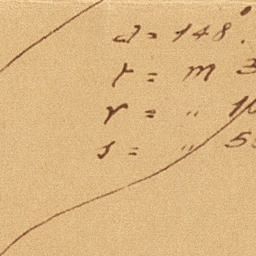 d = 148°.
t = m 3
r = " 10
s = " 5